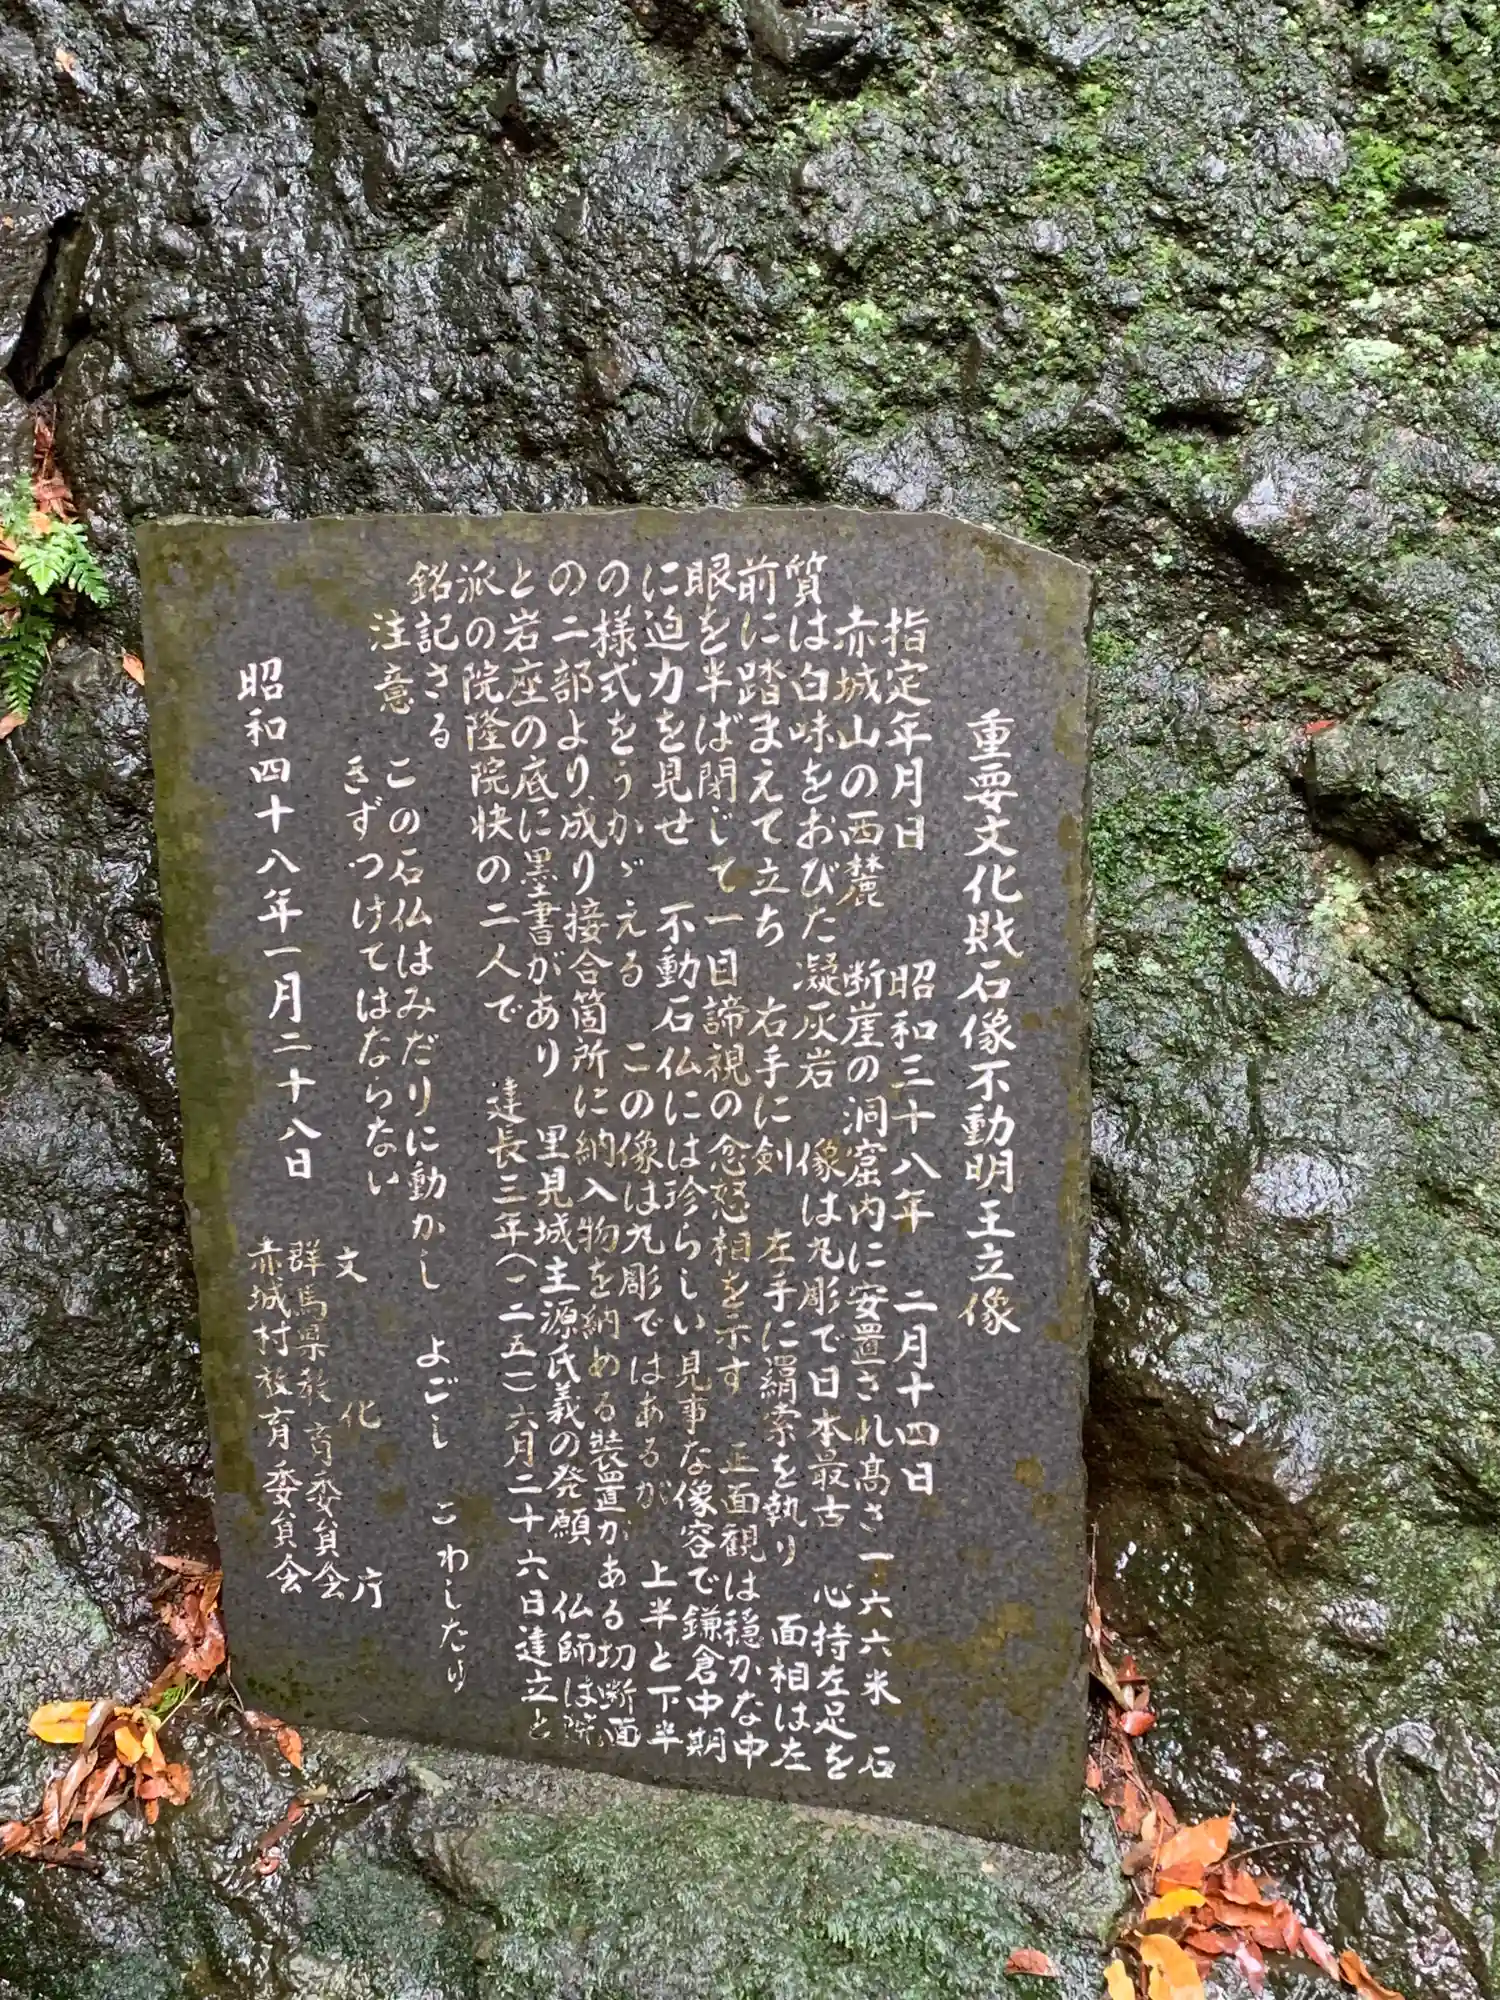 重要文化財石像不動明王立像
指定年月日 昭和三十八年 二月十四日
赤城山の西麓 断崖の洞窟内に安置され高さ一六六米 石
質は白味をおびた凝灰岩 像は丸彫で日本最古 心持左足を
前に踏まえて立ち 右手に剣 左手に羂索を執り 面相は左
眼を半ば閉じて一目諦視の忿怒相を示す 正面観は穏かな中
に迫力を見せ 不動石仏には珍らしい見事な像容で鎌倉中期
の様式をうかゞえる この像は丸彫ではあるが 上半と下半
の二部より成り接合箇所に納入物を納める装置がある切断面
と岩座の底に墨書があり 里見城主源氏義の発願 仏師は院
派の院隆院快の二人で 建長三年(一二五一)六月二十六日建立と
銘記さる
注意 この石仏はみだりに動かし よごし こわしたり
きずつけてはならない
昭和四十八年一月二十八日
文化庁
群馬県教育委員会
赤城村教育委員会